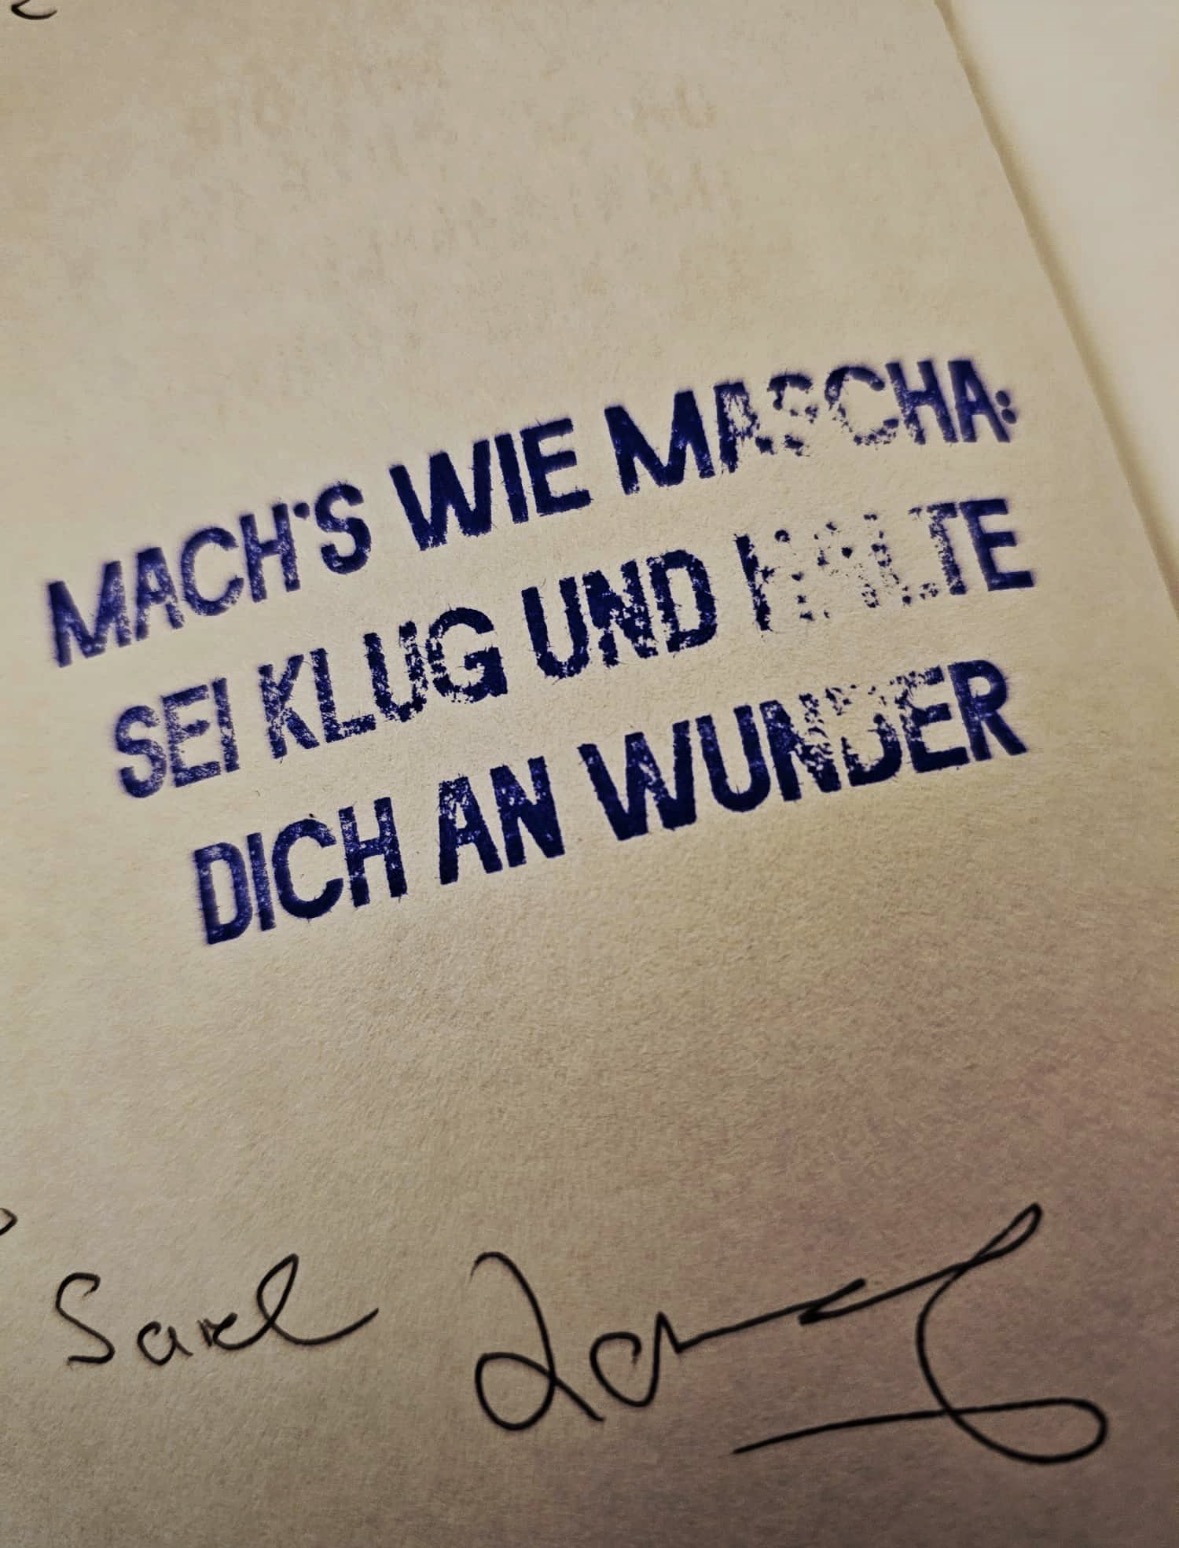 MACH'S WIE MASCHA:
SEI KLUG UND HALTE
DICH AN WUNDER